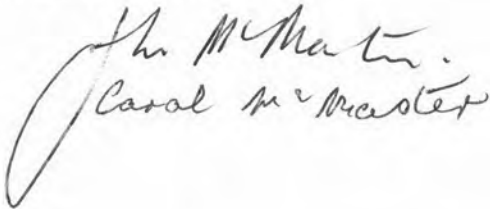 John McMaster.
Carol McMaster